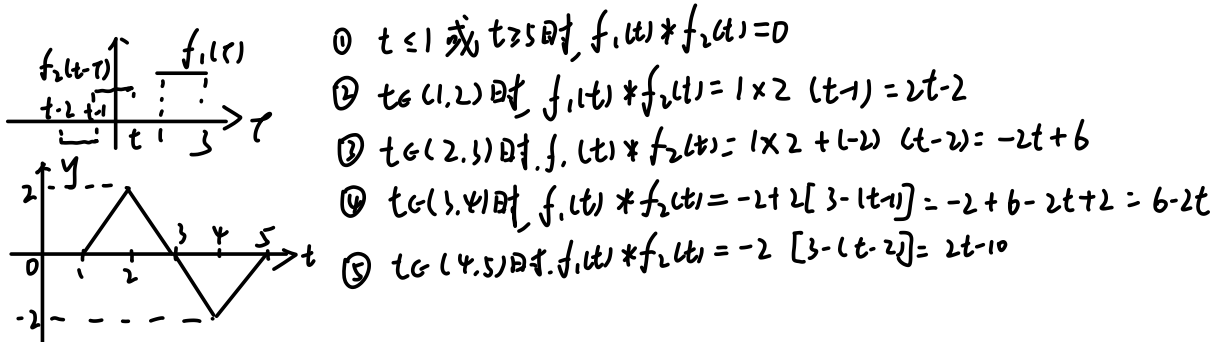 f₁(τ)
f₂(t-τ)
t-2 t-1
t 1 3 τ
y
2
0 1 2 3 4 5 t
-2
① t≤1 或 t≥5时, f₁(t)*f₂(t)=0
② t∈(1,2)时, f₁(t)*f₂(t)=1×2 (t-1)=2t-2
③ t∈(2.3)时.f₁(t)*f₂(t)=1×2+(-2) (t-2)=-2t+6
④ t∈(3.4)时, f₁(t)*f₂(t)=-2+2[3-(t-1)]=-2+6-2t+2=6-2t
⑤ t∈(4.5)时.f₁(t)*f₂(t)=-2 [3-(t-2)]=2t-10